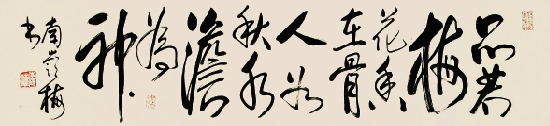 品若
梅
花香
在骨
人如
秋水
澹
為
神
南
梅
书